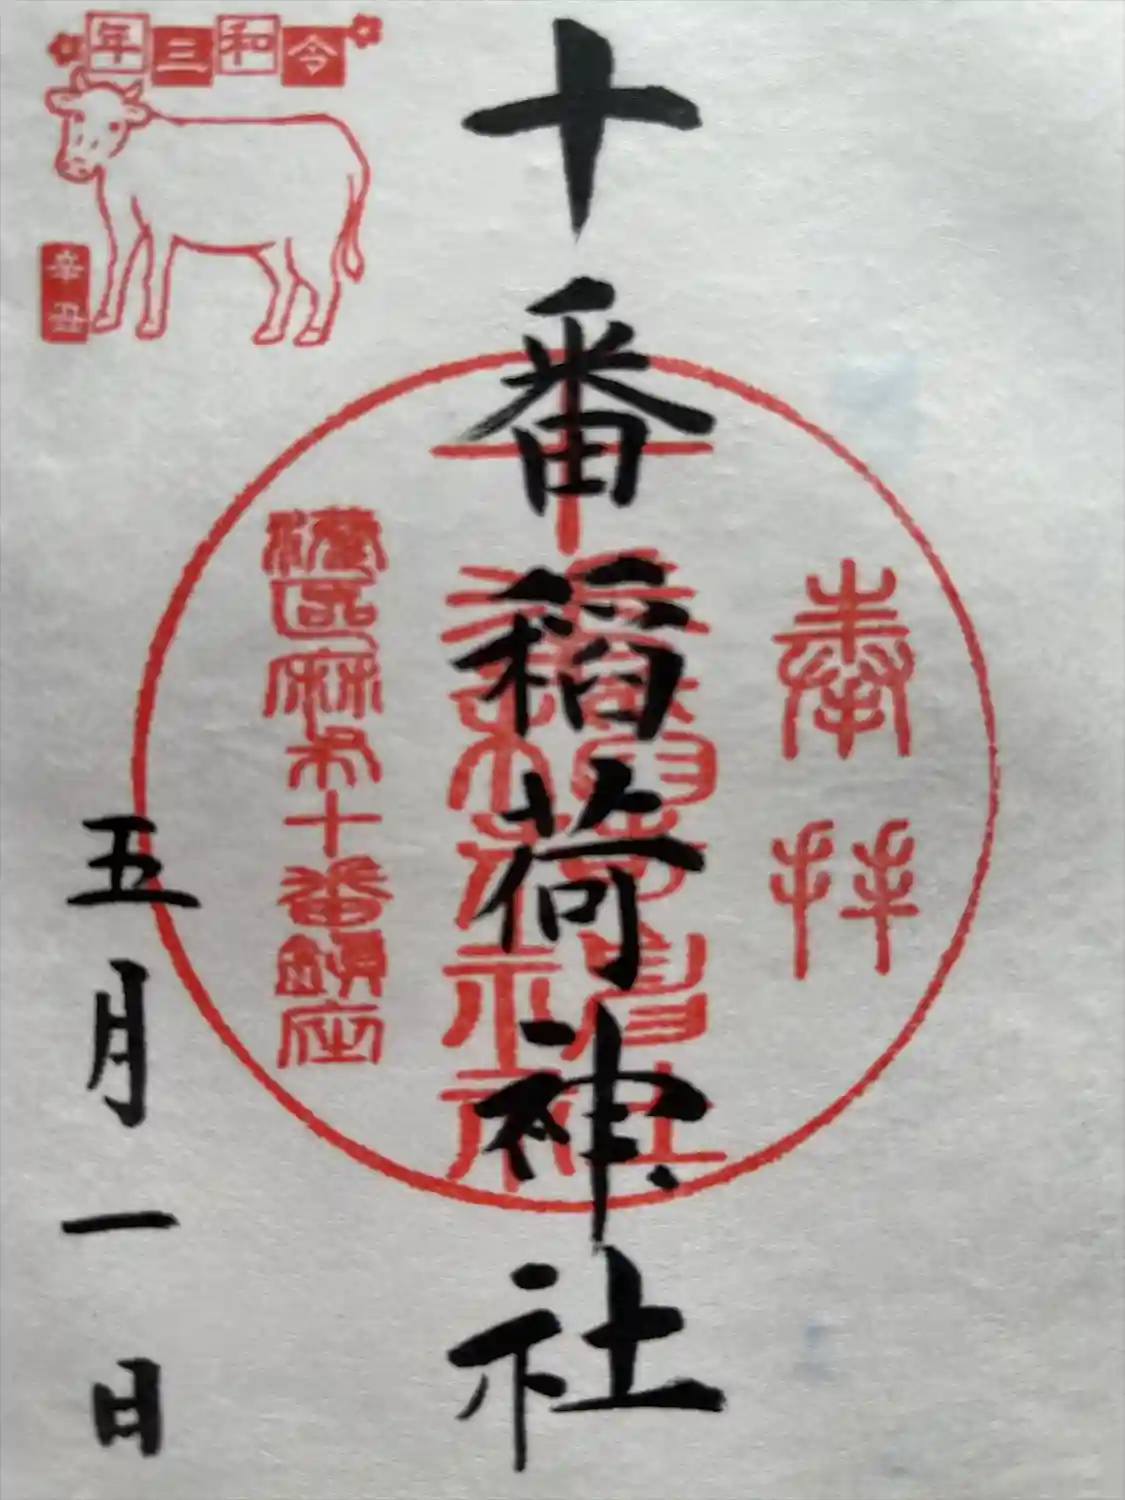 令和三年
辛丑
奉拝
十番稲荷神社
港区麻布十番鎮座
五月一日